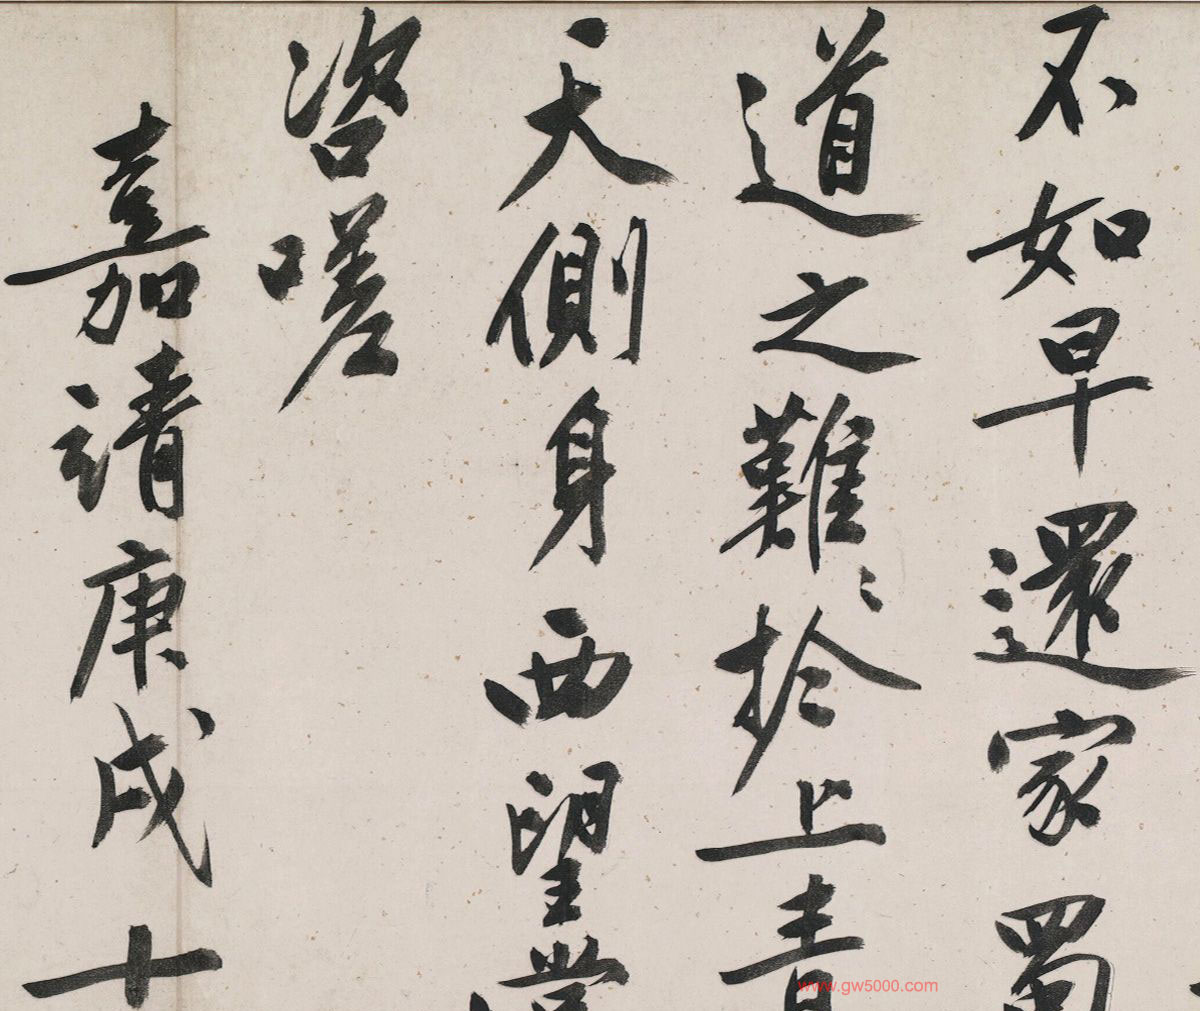 不如早還家蜀
道之難〻於上青
天側身西望常
咨嗟
嘉靖庚戌十
www.gw5000.com